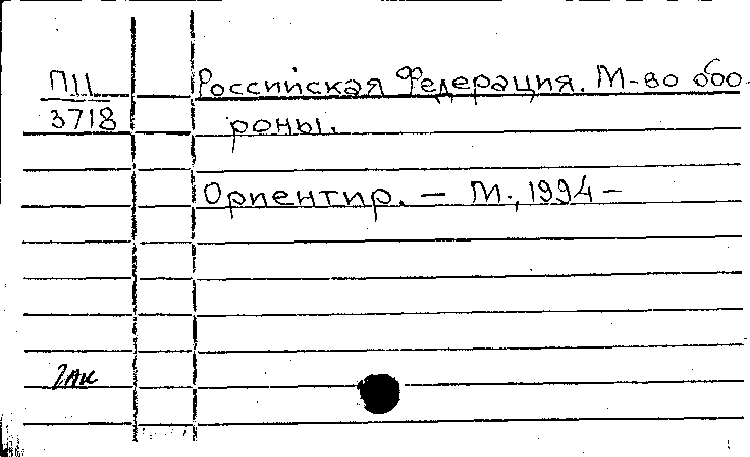 П11
3718
Российская Федерация. М-во обо-
роны.
Ориентир. — М., 1994 —